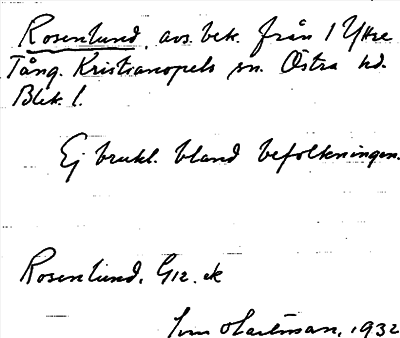 Rosenlund, avs. bek. från 1 Yttre
Tång. Kristianopels sn. Östra hd.
Blek. l.
Ej brukl. bland befolkningen.
Rosenlund. G12. ek
Hartman, 1932